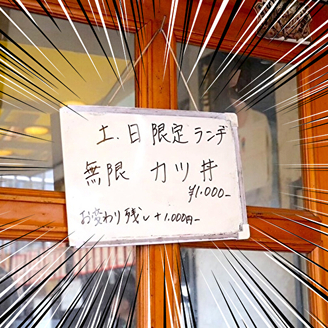 土.日 限定 ランチ
無限 カツ丼
¥1.000-
お変わり残し+1.000円-